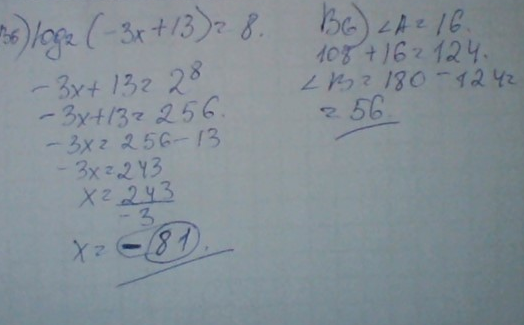 B5) log₂(-3x+13)=8.
-3x+13=2⁸
-3x+13=256.
-3x=256-13
-3x=243
x=243/-3
x=-81.
B6) ∠A=16.
108+16=124.
∠B=180-124=
=56